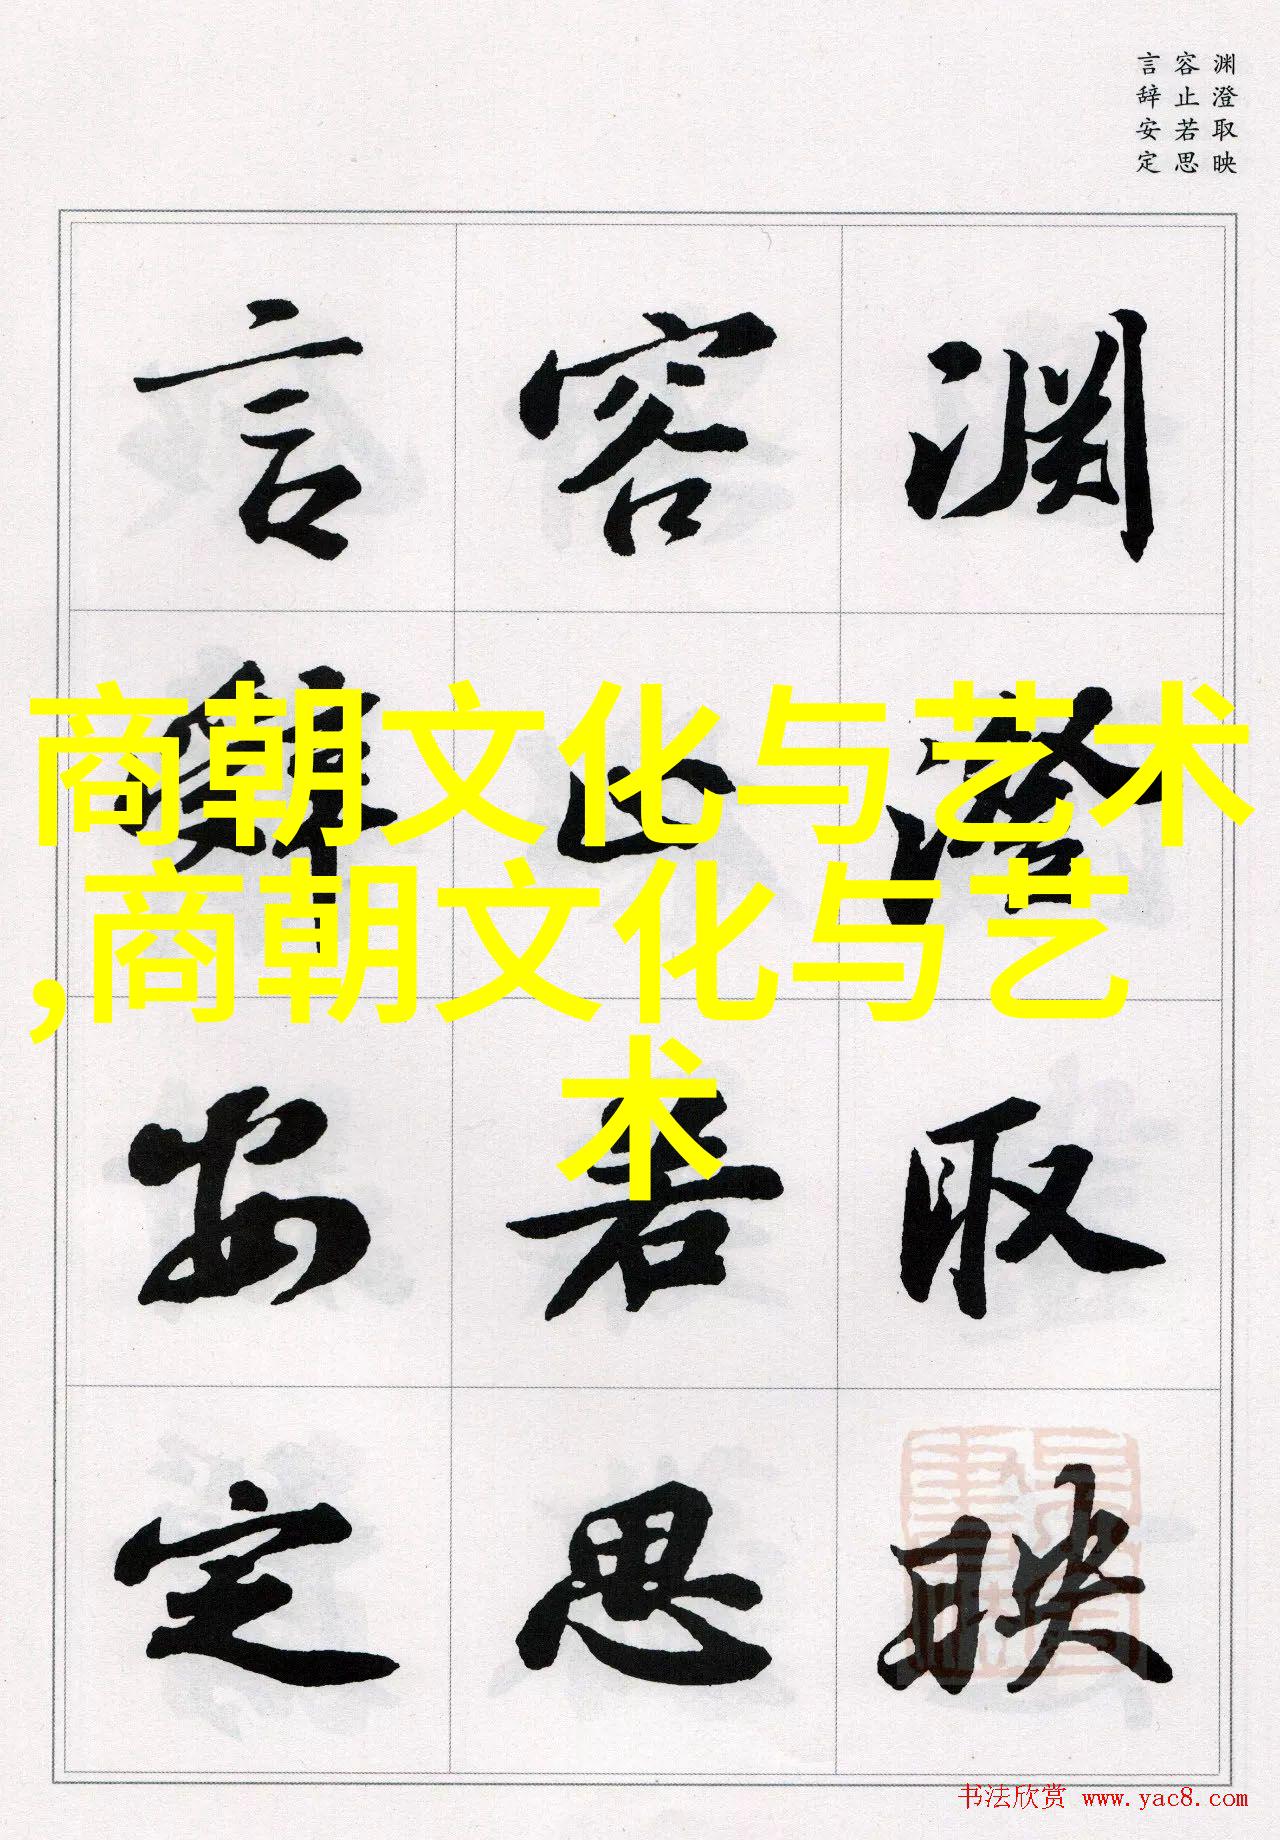 渊澄取映
容止若思
言辞安定
渊澄取映
容止若思
言辞安定
商朝文化与艺术
,商朝文化与艺
术
书法欣赏 www.yac8.com